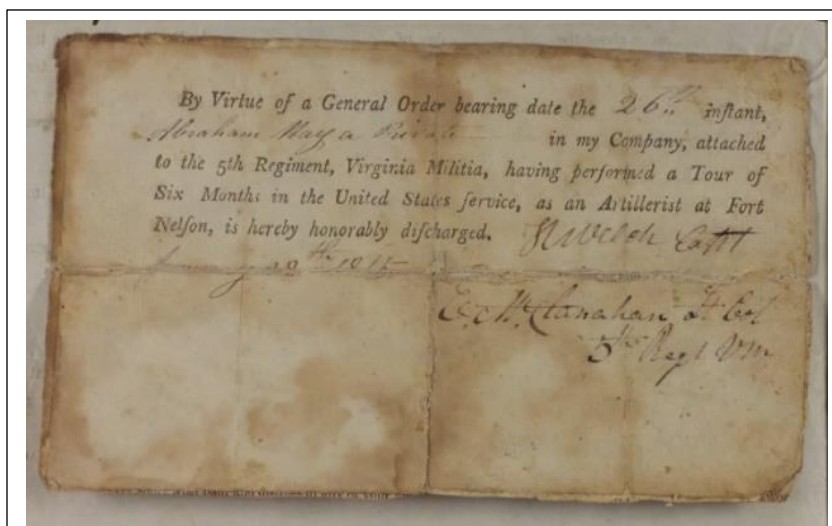 By Virtue of a General Order bearing date the 26th inſtant,
Abraham May a Private in my Company, attached
to the 5th Regiment, Virginia Militia, having performed a Tour of
Six Months in the United States ſervice, as an Artilleriſt at Fort
Nelſon, is hereby honorably diſcharged. Welch Capt
January 1815
E. McClanahan Lt Col
5th Regt VM